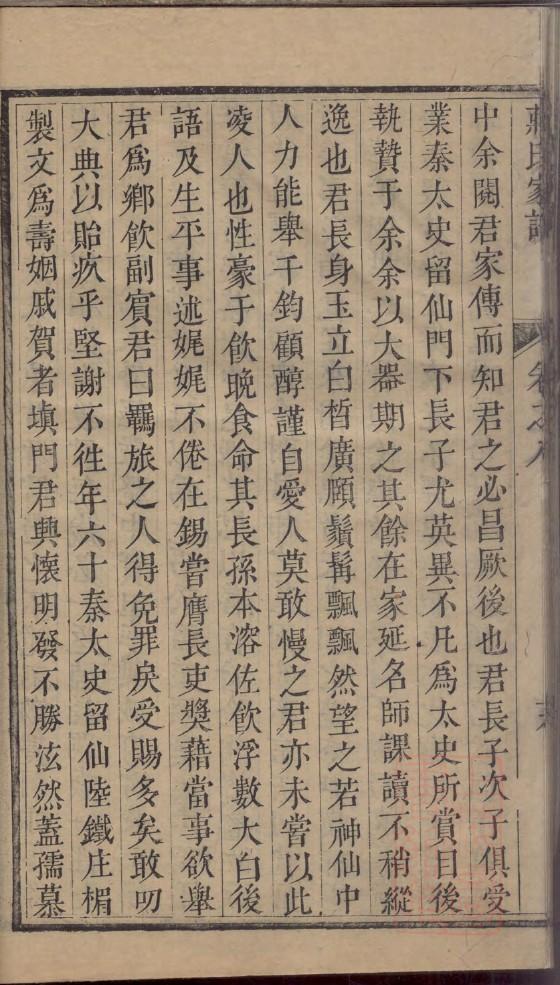 氏家
卷之八
中余閱君家傳而知君之必昌厥後也君長子次子俱受
業秦太史留仙門下長子尤英異不凡爲太史所賞目後
執贄于余余以大器期之其餘在家延名師課讀不稍縱
逸也君長身玉立白皙廣頤鬚髯飄飄然望之若神仙中
人力能舉千鈞顧醇謹自愛人莫敢慢之君亦未嘗以此
凌人也性豪于飲晚食命其長孫本溶佐飲浮數大白後
語及生平事述娓娓不倦在錫嘗膺長吏獎藉當事欲舉
君爲鄉飲副賓君曰羈旅之人得免罪戾受賜多矣敢叨
大典以貽疚乎堅謝不徃年六十秦太史留仙陸鐵庄楣
製文爲壽姻戚賀者塡門君興懷明發不勝泫然蓋孺慕